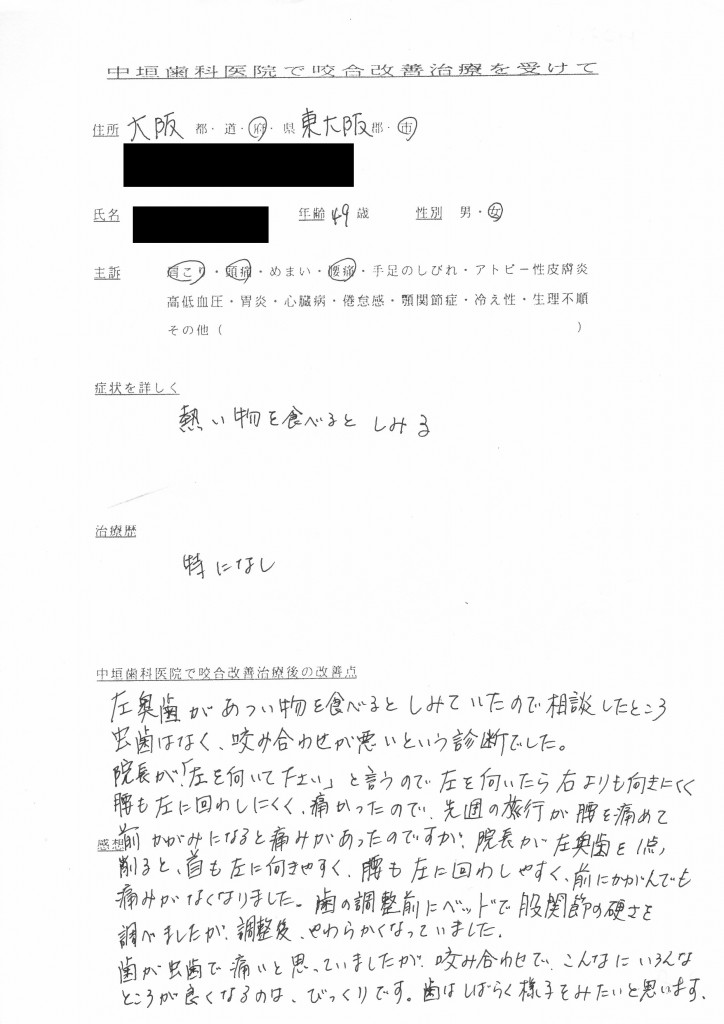 中垣歯科医院で咬合改善治療を受けて
住所 大阪 都・道・府・県 東大阪 郡・市
氏名 年齢 49 歳 性別 男・女
主訴 肩こり・頭痛・めまい・腰痛・手足のしびれ・アトピー性皮膚炎
高低血圧・胃炎・心臓病・倦怠感・顎関節症・冷え性・生理不順
その他（ ）
症状を詳しく
熱い物を食べると しみる
治療歴
特になし
中垣歯科医院で咬合改善治療後の改善点
左奥歯があつい物を食べるとしみていたので相談したところ
虫歯はなく、咬み合わせが悪いという診断でした。
院長が、「左を向いて下さい」と言うので左を向いたら右よりも向きにくく
腰も左に回わしにくく、痛かったので、先週の旅行が腰を痛めて
前かがみになると痛みがあったのですが、院長が左奥歯を1点、
感想
削ると、首も左に向きやすく、腰も左に回わしやすく、前にかがんでも
痛みがなくなりました。歯の調整前にベッドで股関節の硬さを
調べましたが、調整後、やわらかくなっていました。
歯が虫歯で痛いと思っていましたが、咬み合わせで、こんなにいろんな
ところが良くなるのは、びっくりです。歯はしばらく様子をみたいと思います。